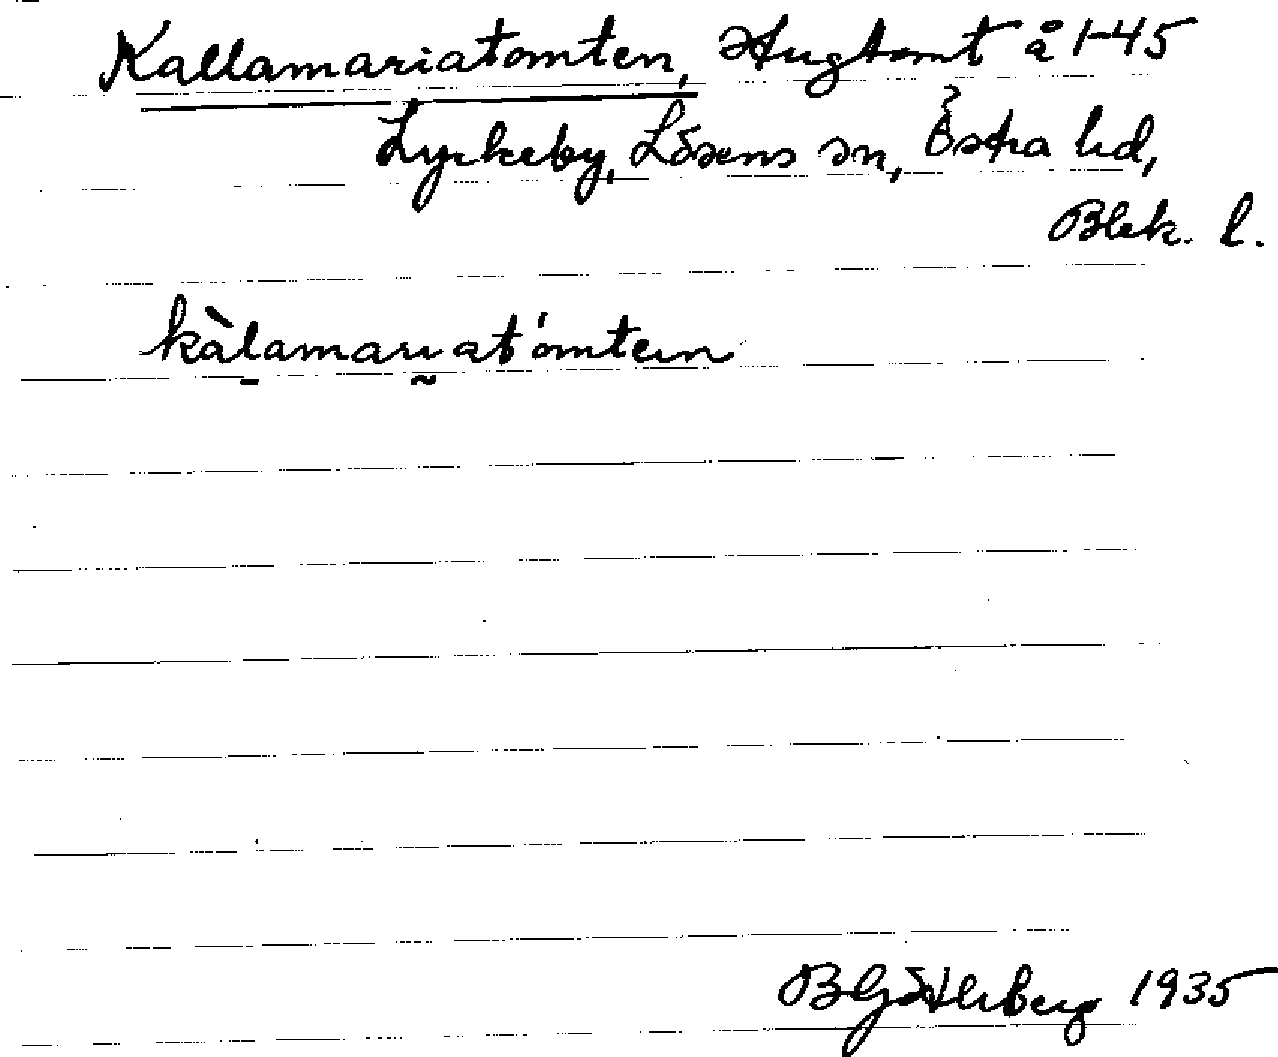 Kallamariatomten, Hustomt å 1-45
Lyckeby, Lösens sn, Östra hd,
Blek. l.
kàlamariat'omten
B Götlerberg 1935